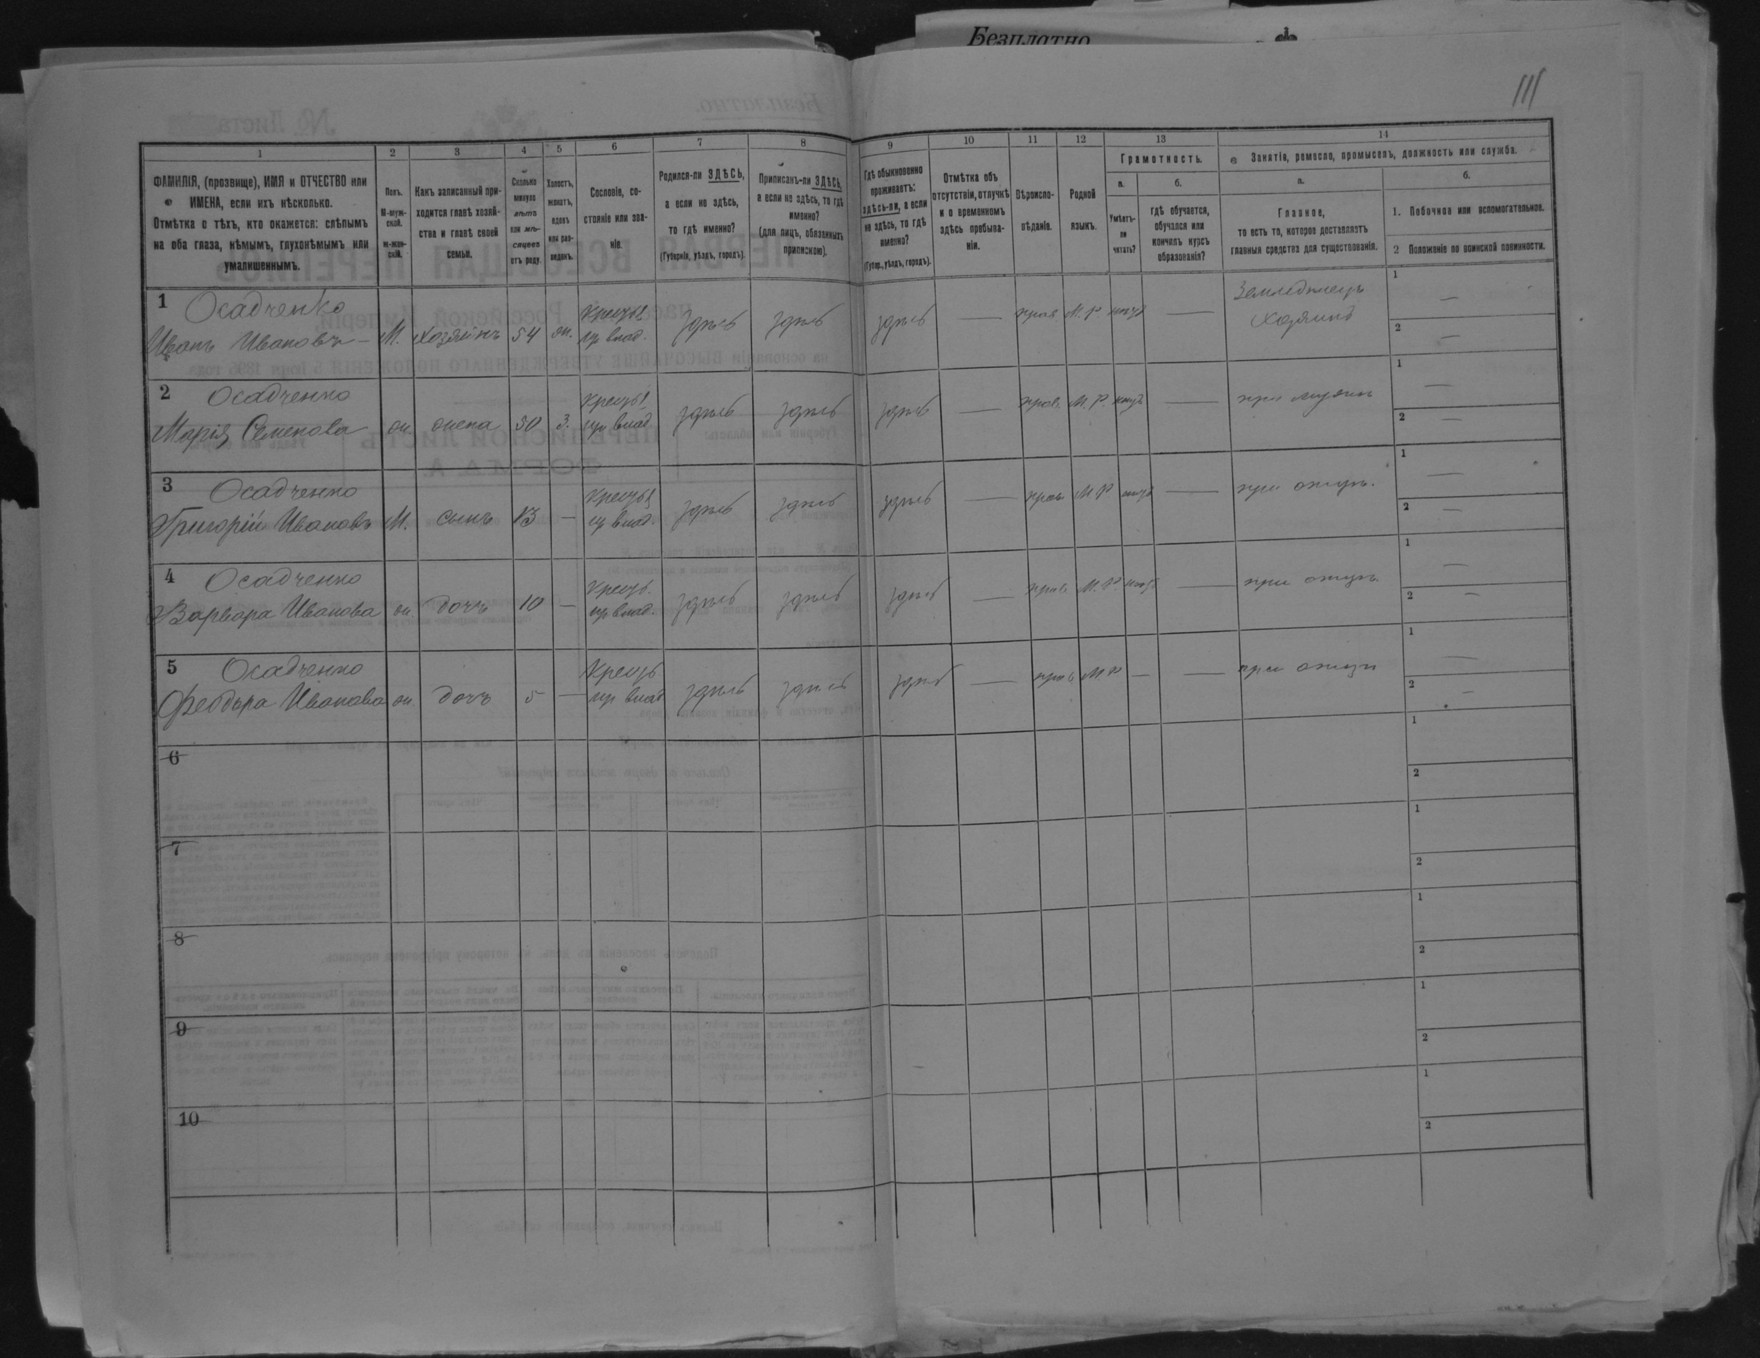 Безплатно
111
1 2 3 4 5 6 7 8 9 10 11 12 13 14
ФАМИЛІЯ, (прозвище), ИМЯ и ОТЧЕСТВО или
ИМЕНА, если ихъ нѣсколько.
Отмѣтка о тѣхъ, кто окажется: слѣпымъ
на оба глаза, нѣмымъ, глухонѣмымъ или
умалишеннымъ.
Полъ.
М-муж-
ской.
ж-жен-
скій.
Какъ записанный при-
ходится главѣ хозяй-
ства и главѣ своей
семьи.
Сколько
минуло
лѣтъ
или мѣ-
сяцевъ
отъ роду.
Холостъ,
женатъ,
вдовъ
или раз-
веденъ.
Сословіе, со-
стояніе или зва-
ніе.
Родился-ли ЗДѢСЬ,
а если не здѣсь,
то гдѣ именно?
(Губернія, уѣздъ, городъ).
Приписанъ-ли ЗДѢСЬ,
а если не здѣсь, то гдѣ
именно?
(для лицъ, обязанныхъ
припискою).
Гдѣ обыкновенно
проживаетъ:
здѣсь-ли, а если
не здѣсь, то гдѣ
именно?
(Губер., уѣздъ, городъ).
Отмѣтка объ
отсутствіи, отлучкѣ
и о временномъ
здѣсь пребыва-
ніи.
Вѣроиспо-
вѣданіе.
Родной
языкъ.
Грамотность.
а.
Умѣетъ-
ли
читать?
б.
гдѣ обучается,
обучался или
кончилъ курсъ
образованія?
Занятіе, ремесло, промыселъ, должность или служба.
а.
Главное,
то есть то, которое доставляетъ
главныя средства для существованія.
б.
1. Побочное или вспомогательное.
2 Положеніе по воинской повинности.
1 Осадченко
Иванъ Ивановъ М. Хозяинъ 54 ж. Крестья. изъ влад. здѣсь здѣсь здѣсь — прав М. Р нѣтъ — Земледѣлецъ хозяинъ 1 — 2 —
2 Осадченко
Марія Семенова ж. жена 50 з. Крестья изъ влад здѣсь здѣсь здѣсь — прав. М. Р. нѣтъ — при мужѣ 1 — 2 —
3 Осадченко
Григорій Ивановъ М. сынъ 13 — Крестья изъ влад здѣсь здѣсь здѣсь — прав М Р нѣтъ — при отцѣ. 1 — 2 —
4 Осадченко
Варвара Иванова ж дочь 10 — Крестья. изъ влад. здѣсь здѣсь здѣсь — прав. М. Р. нѣтъ — при отцѣ 1 — 2 —
5 Осадченко
Феодора Иванова ж. дочь 5 — Крестья изъ влад здѣсь здѣсь здѣсь — прав М Р — — при отцѣ 1 — 2 —
6 1 2
7 1 2
8 1 2
9 1 2
10 1 2